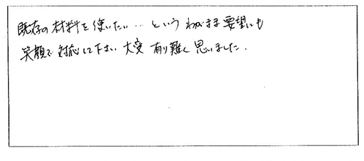 既存の材料を使いたい…というわがまま要望にも
笑顔で対応して下さい大変有り難く思いました。